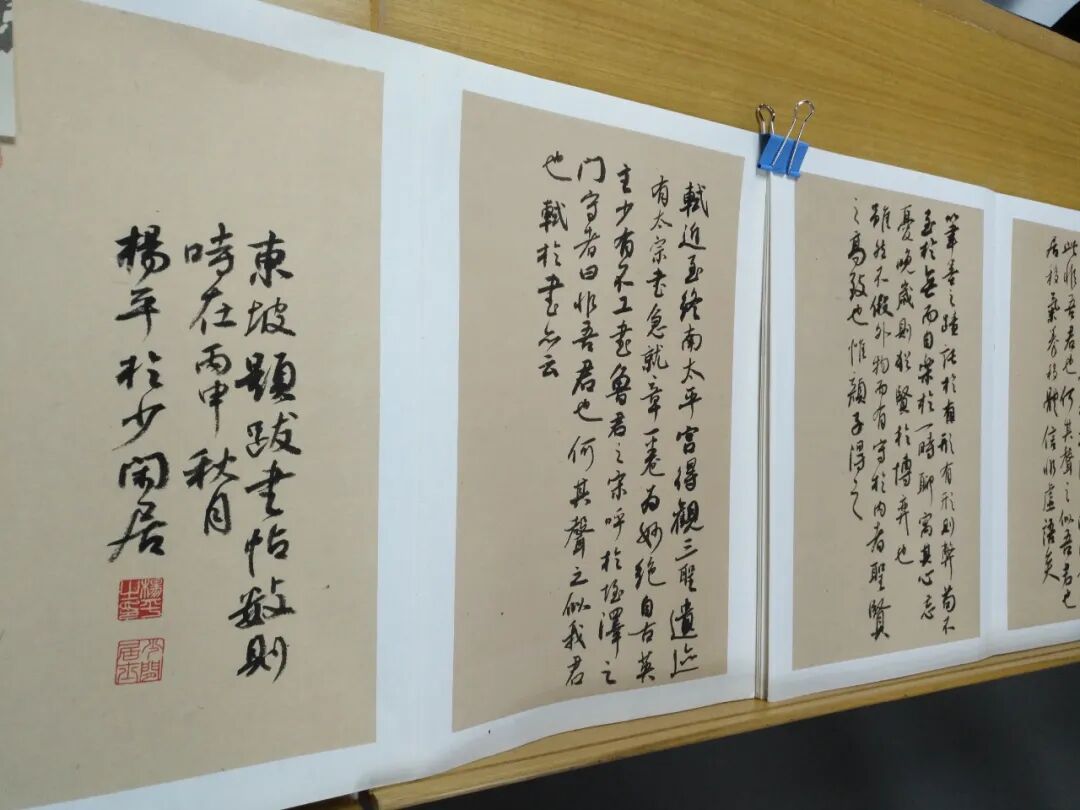 此非吾君也何其聲之似吾君也
居移氣養移體信非虛語矣
筆墨之蹟託於有形有形則弊苟不
至於無而自樂於一時聊寓其心忘
憂晚歲則猶賢於博弈也
雖然不假外物而有守於內者聖賢
之高致也惟顏子得之
軾近至終南太平宮得觀三聖遺迹
有太宗書急就章一卷為妙絕自古英
主少有不工書魯君之宋呼於垤澤之
門守者曰非吾君也何其聲之似我君
也軾於書亦云
東坡題跋書帖數則
時在丙申秋月
楊平於少閑居
楊平之印
少閑居士